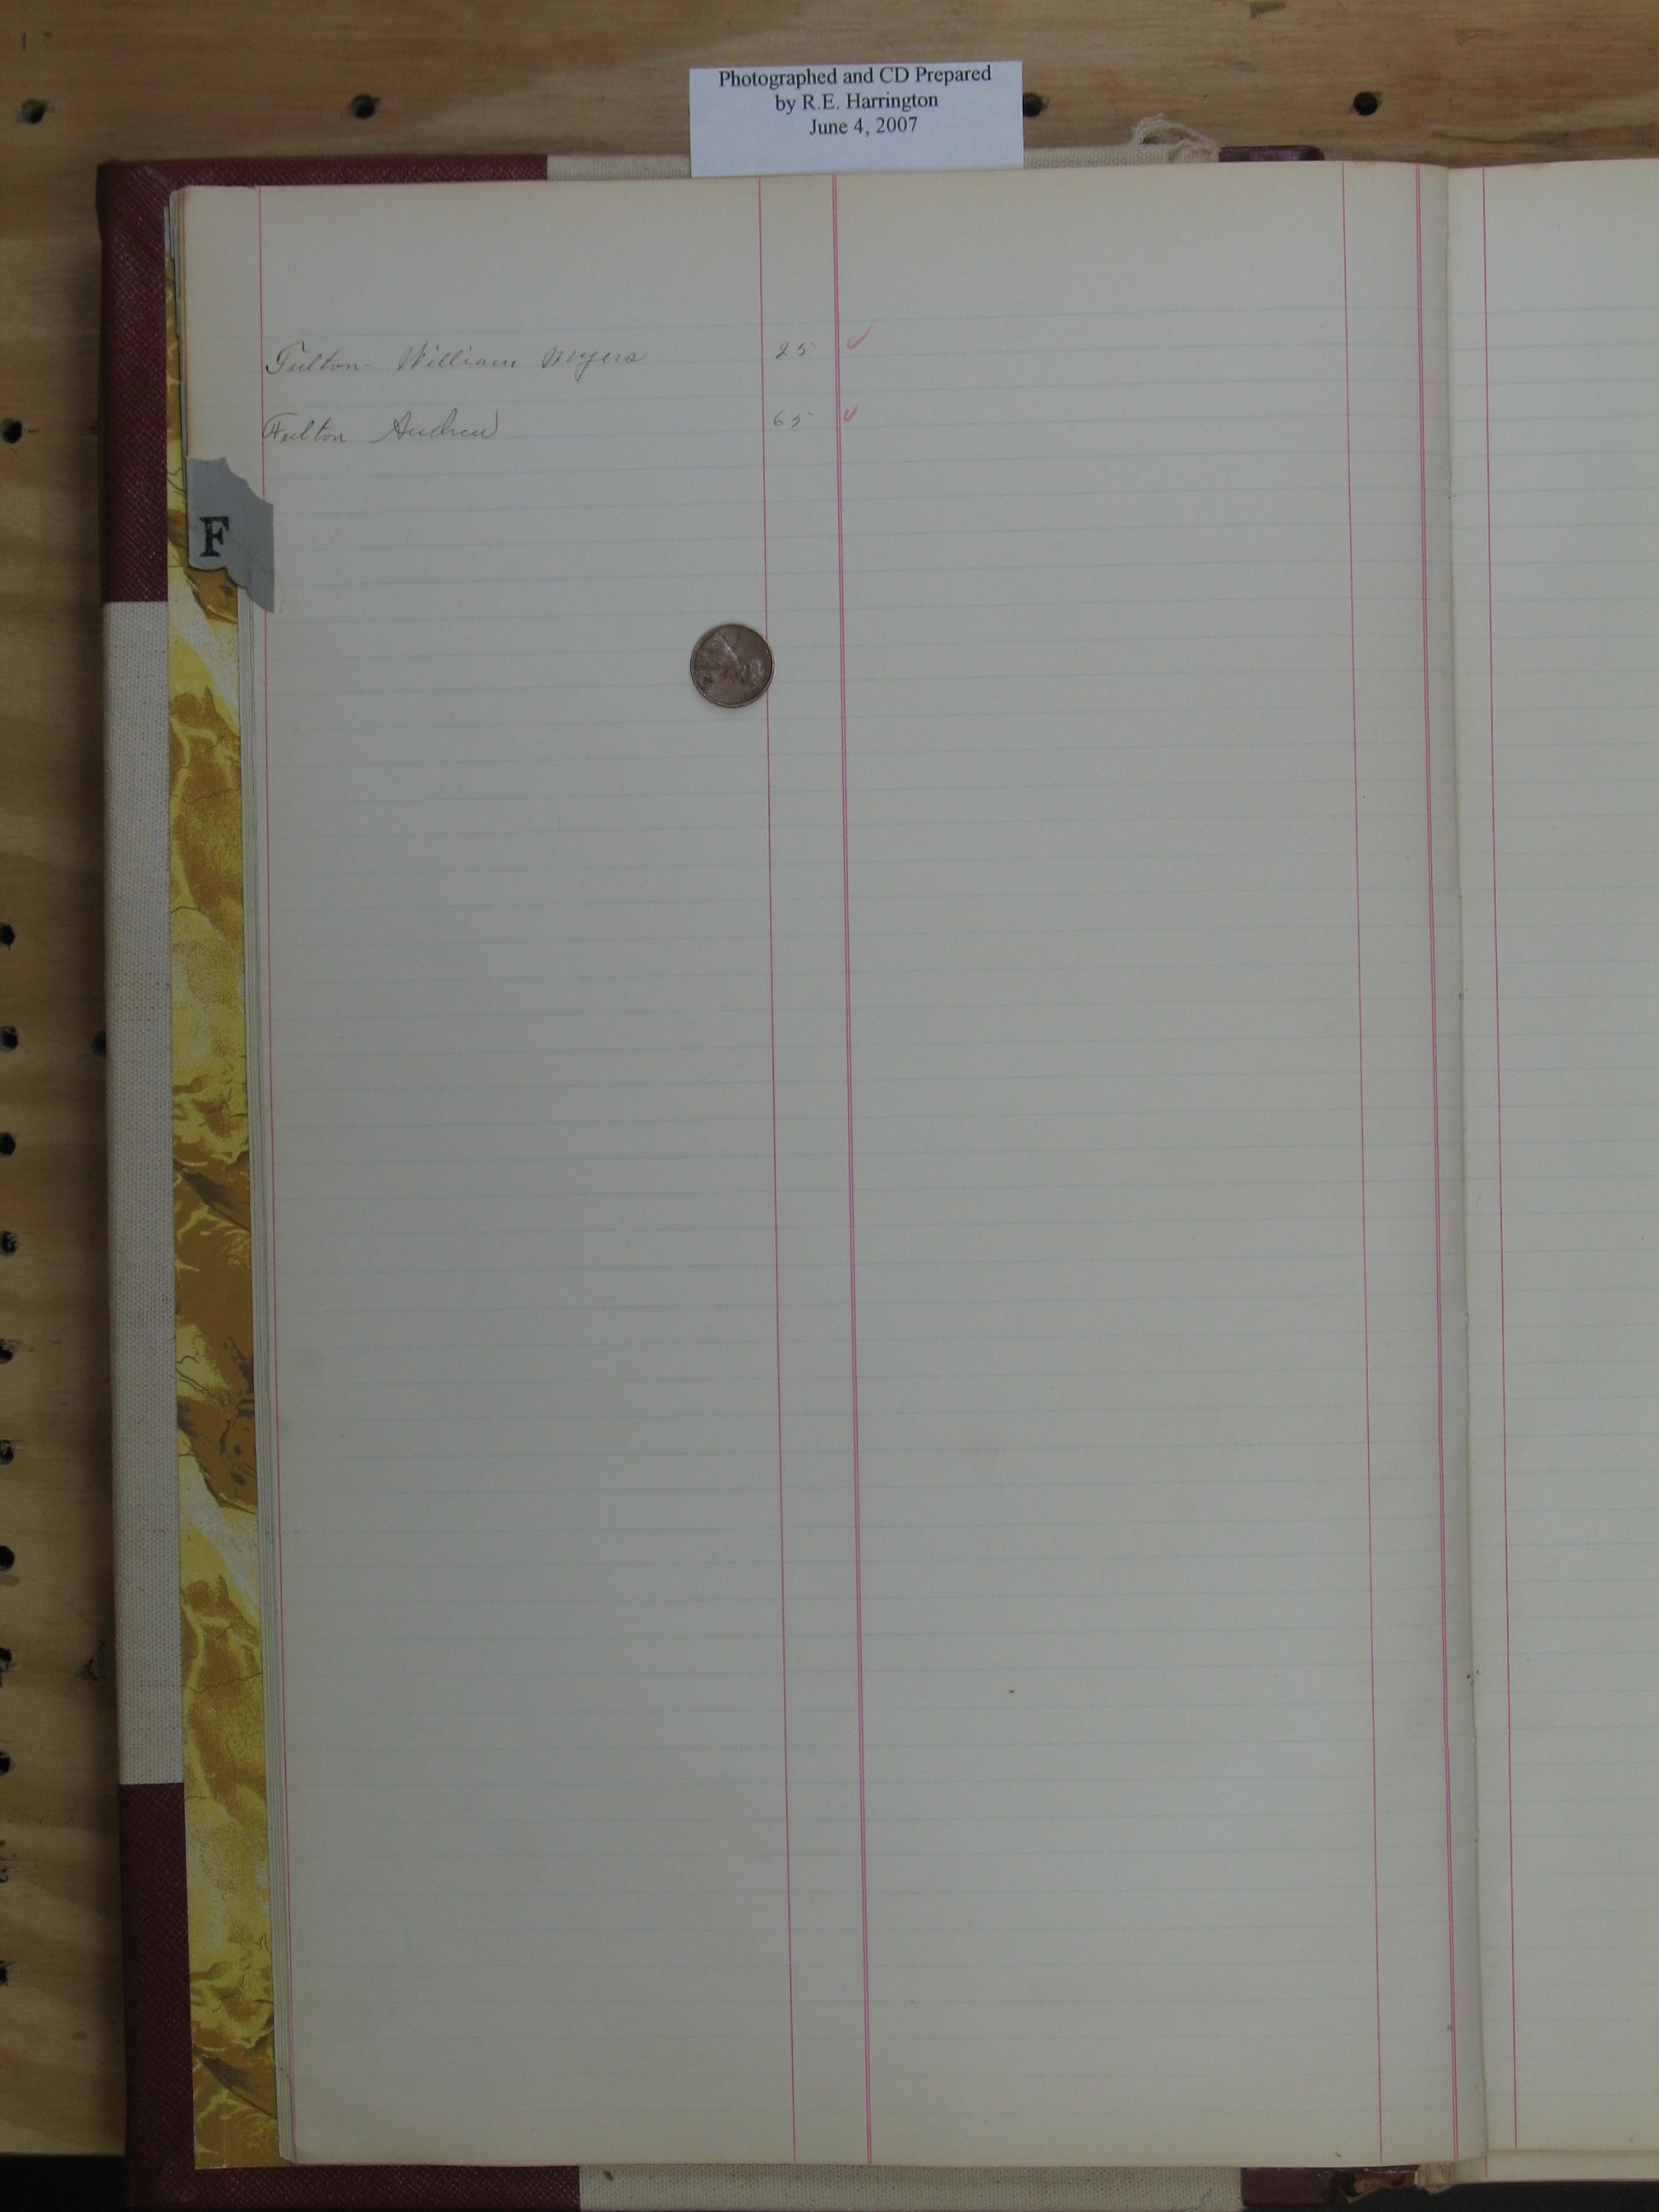 Photographed and CD Prepared
by R.E. Harrington
June 4, 2007
Fulton William Myers 25 ✓
Fulton Andrew 65 ✓
F